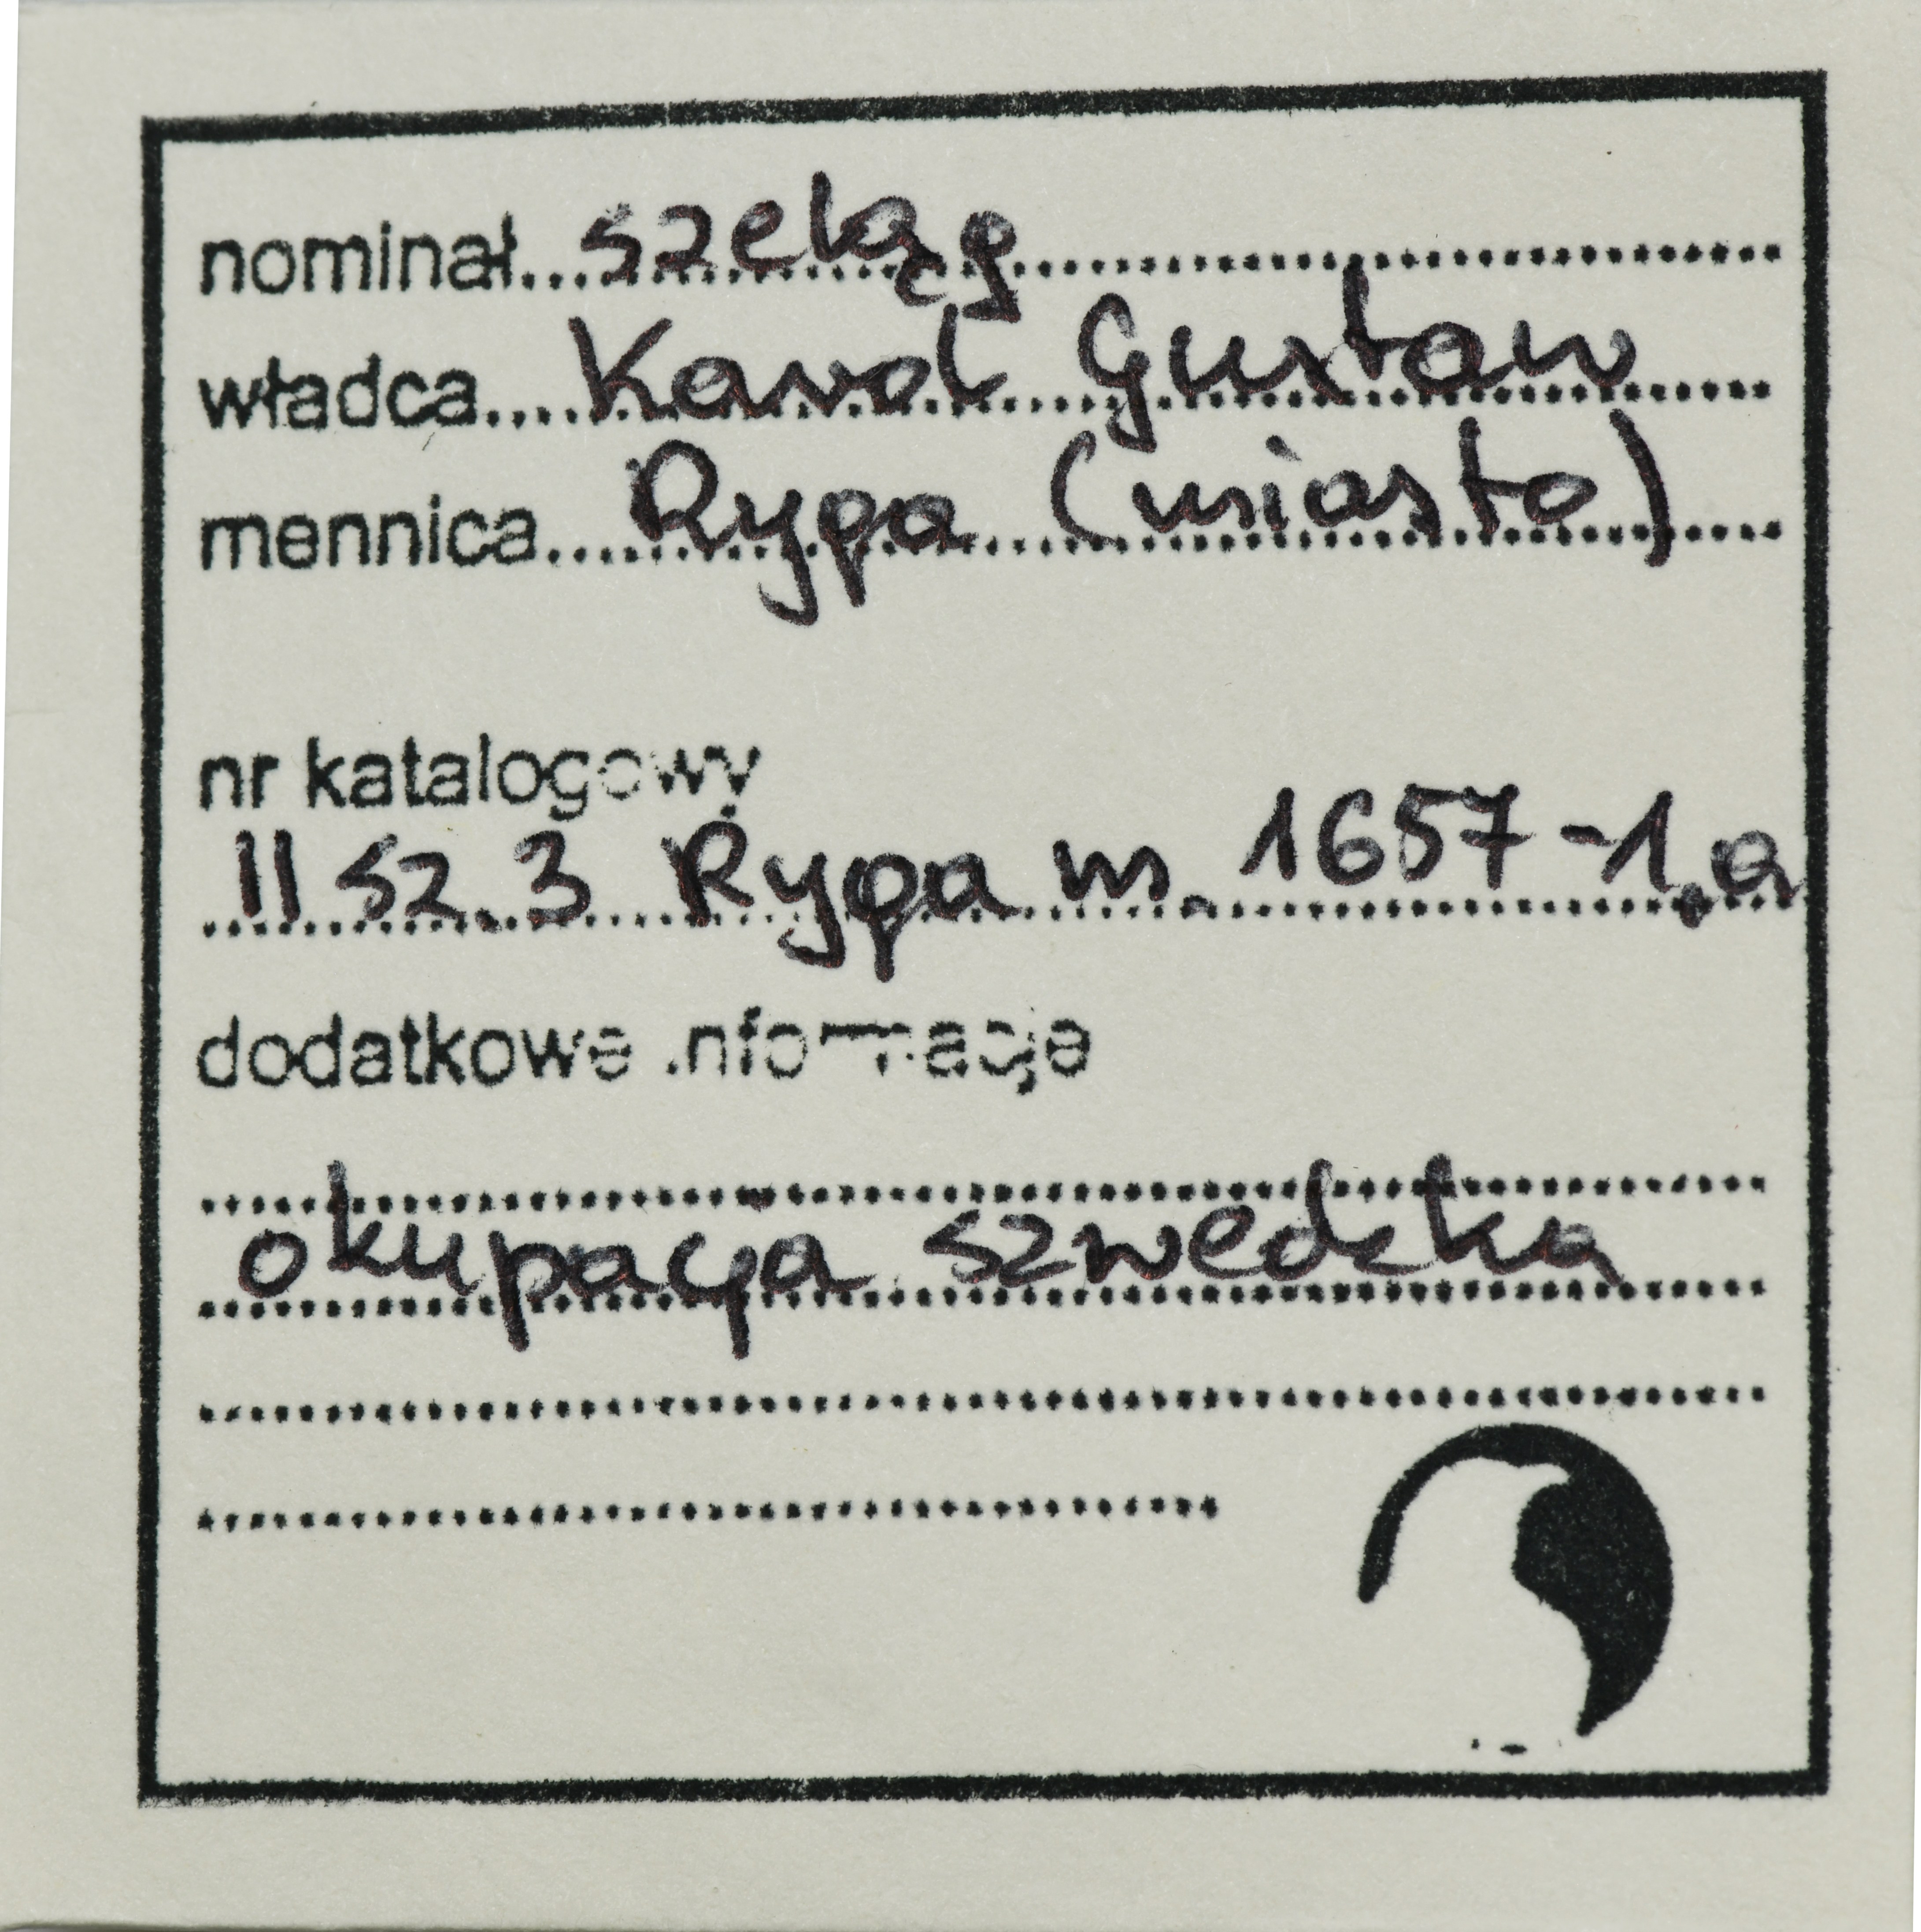 nominał...szeląg
władca....Karol Gustaw
mennica....Ryga (miasto)
nr katalogowy
II sz. 3 Ryga m. 1657-1.a
dodatkowe informacje
okupacja szwedzka